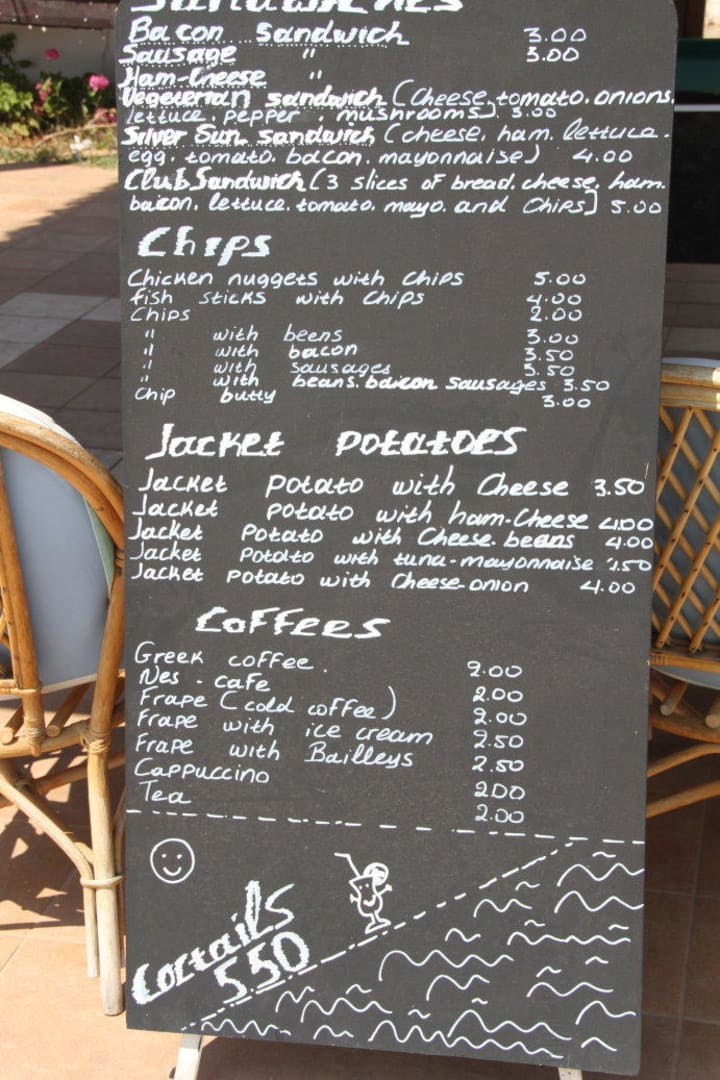 Sandwiches
Bacon sandwich 3.00
Sausage " 3.00
Ham-Cheese "
Vegeterian sandwich (cheese, tomato. onions.
lettuce. pepper. mushrooms). 3.00
Silver Sun sandwich (cheese, ham. lettuce.
egg. tomato. bacon. mayonnaise) 4.00
Club Sandwich (3 slices of bread. cheese. ham.
bacon. lettuce. tomato. mayo. and Chips) 5.00
Chips
Chicken nuggets with chips 5.00
fish sticks with chips 4.00
Chips 2.00
" with beens 3.00
" with bacon 3.50
" with sausages 3.50
" with beans. bacon sausages 3.50
Chip butty 3.00
Jacket potatoes
Jacket potato with Cheese 3.50
Jacket potato with ham-Cheese 4.00
Jacket Potato with Cheese. beans 4.00
Jacket Potato with tuna-mayonnaise 3.50
Jacket potato with Cheese-onion 4.00
Coffees
Greek coffee. 2.00
Nes-cafe 2.00
Frape (cold coffee) 2.00
Frape with ice cream 2.50
Frape with Bailleys 2.50
Cappuccino 200
Tea 2.00
Coctails
5.50